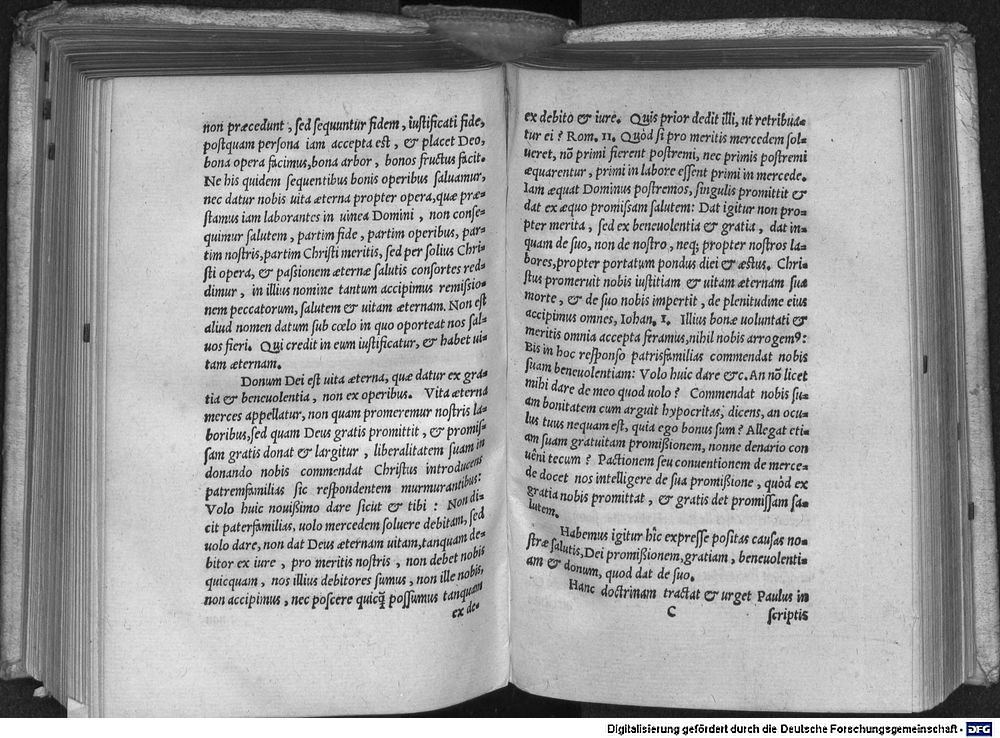 non præcedunt, sed sequuntur fidem, iustificati fide,
postquam persona iam accepta est, & placet Deo,
bona opera facimus, bona arbor, bonos fructus facit.
Ne his quidem sequentibus bonis operibus saluamur,
nec datur nobis uita æterna propter opera, quæ præ-
stamus iam laborantes in uinea Domini, non conse-
quimur salutem, partim fide, partim operibus, par-
tim nostris, partim Christi meritis, sed per solius Chri-
sti opera, & passionem æternæ salutis consortes red-
dimur, in illius nomine tantum accipimus remissio-
nem peccatorum, salutem & uitam æternam. Non est
aliud nomen datum sub cœlo in quo oporteat nos sal-
uos fieri. Qui credit in eum iustificatur, & habet ui-
tam æternam.
Donum Dei est uita æterna, quæ datur ex gra-
tia & beneuolentia, non ex operibus. Vita æterna
merces appellatur, non quam promeremur nostris la-
boribus, sed quam Deus gratis promittit, & promis-
sam gratis donat & largitur, liberalitatem suam in
donando nobis commendat Christus introducens
patremfamilias sic respondentem murmurantibus:
Volo huic nouissimo dare sicut & tibi: Non di-
cit paterfamilias, uolo mercedem soluere debitam, sed
uolo dare, non dat Deus æternam uitam, tanquam de-
bitor ex iure, pro meritis nostris, non debet nobis
quicquam, nos illius debitores sumus, non ille nobis,
non accipimus, nec poscere quicq̃ possumus tanquam
ex de-
ex debito & iure. Quis prior dedit illi, ut retribua-
tur ei? Rom. 11. Quòd si pro meritis mercedem sol-
ueret, nõ primi fierent postremi, nec primis postremi
æquarentur, primi in labore essent primi in mercede.
Iam æquat Dominus postremos, singulis promittit &
dat ex æquo promissam salutem: Dat igitur non pro-
pter merita, sed ex beneuolentia & gratia, dat in-
quam de suo, non de nostro, neq; propter nostros la-
bores, propter portatum pondus diei & æstus. Chri-
stus promeruit nobis iustitiam & uitam æternam sua
morte, & de suo nobis impertit, de plenitudine eius
accipimus omnes, Iohan. 1. Illius bonæ uoluntati &
meritis omnia accepta feramus, nihil nobis arrogemꝰ:
Bis in hoc responso patrisfamilias commendat nobis
suam beneuolentiam: Volo huic dare &c. An nõ licet
mihi dare de meo quod uolo? Commendat nobis su-
am bonitatem cum arguit hypocritas, dicens, an ocu-
lus tuus nequam est, quia ego bonus sum? Allegat eti-
am suam gratuitam promissionem, nonne denario con
uêni tecum? Pactionem seu conuentionem de merce-
de docet nos intelligere de sua promissione, quòd ex
gratia nobis promittat, & gratis det promissam sa-
lutem.
Habemus igitur hîc expresse positas causas no-
stræ salutis, Dei promissionem, gratiam, beneuolenti-
am & donum, quod dat de suo.
Hanc doctrinam tractat & urget Paulus in
C scriptis
Digitalisierung gefördert durch die Deutsche Forschungsgemeinschaft - DFG